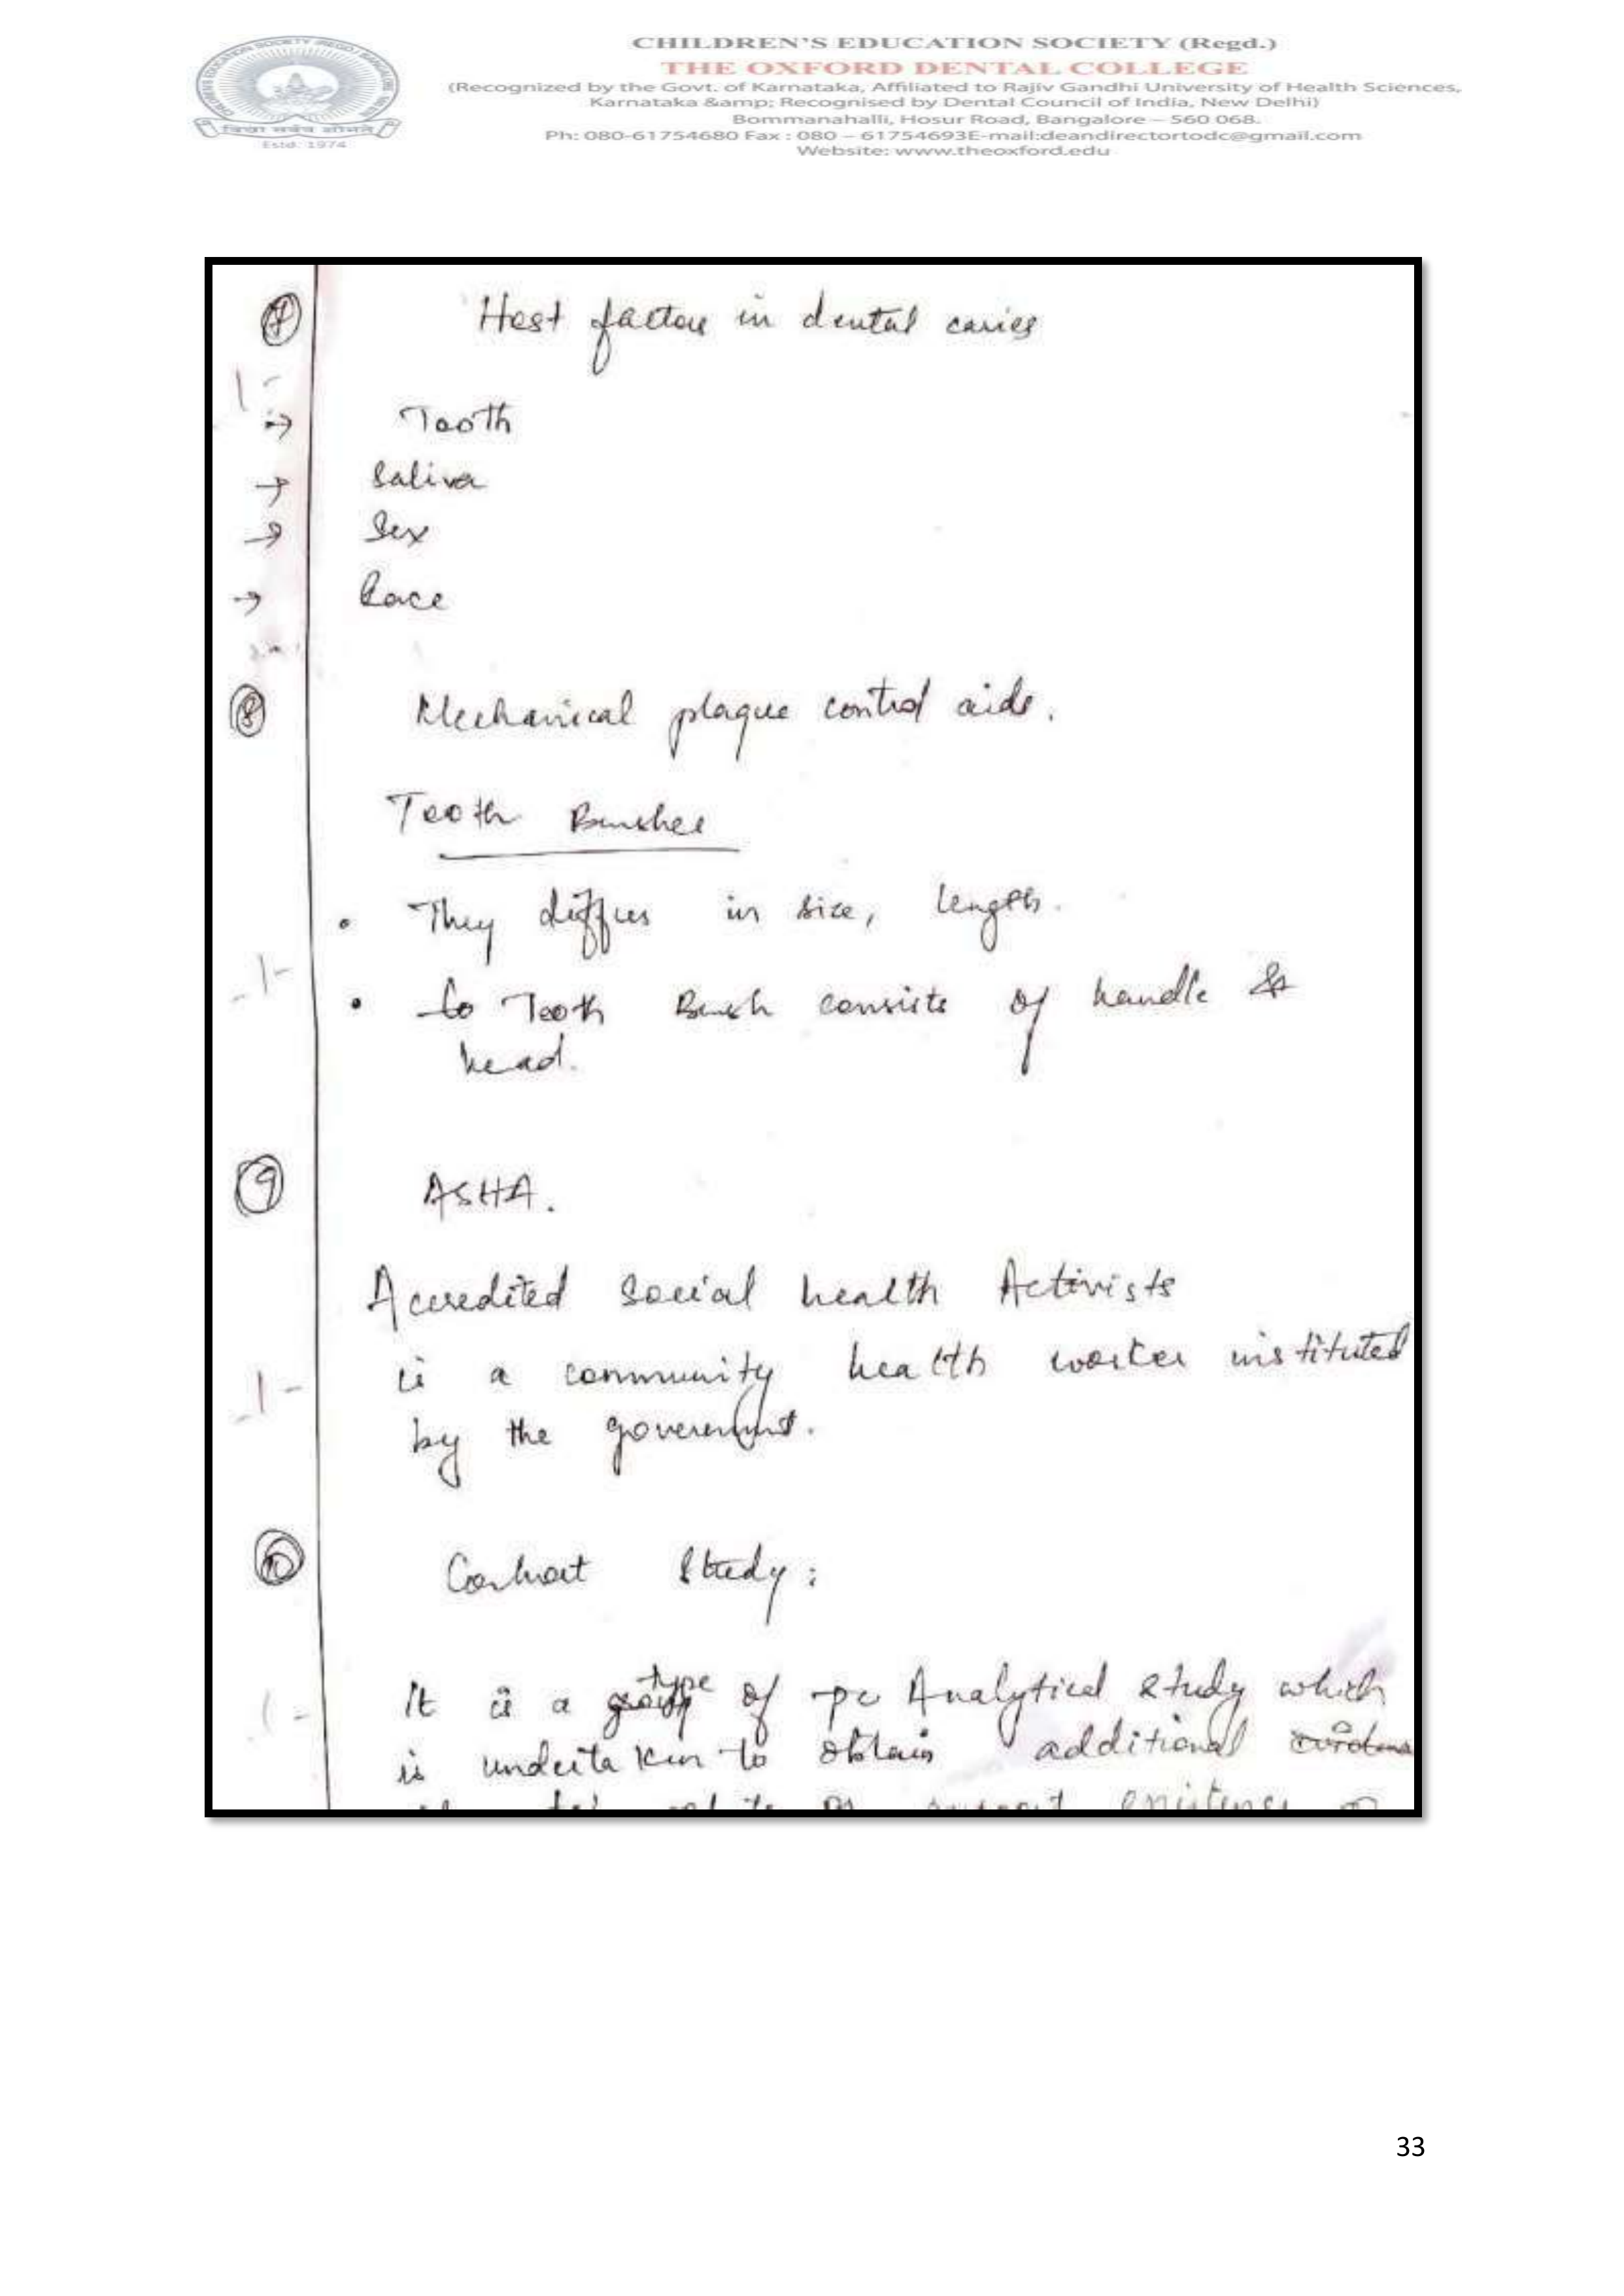 CHILDREN'S EDUCATION SOCIETY (Regd.)
THE OXFORD DENTAL COLLEGE
(Recognized by the Govt. of Karnataka, Affiliated to Rajiv Gandhi University of Health Sciences,
Karnataka &amp; Recognised by Dental Council of India, New Delhi)
Bommanahalli, Hosur Road, Bangalore – 560 068.
Ph: 080-61754680 Fax : 080 – 61754693E-mail:deandirectortodc@gmail.com
Website: www.theoxford.edu
Estd. 1974
7 Host factors in dental caries
1-
→ Tooth
→ Saliva
→ Sex
→ Race
8 Mechanical plaque control aids.
Tooth Brushes
• They differs in size, length.
-1-
• Tooth Brush consists of handle &
head.
9 ASHA.
Accredited Social health Activists
is a community health worker instituted
-1-
by the government.
10 Cohort Study:
It is a type of Analytical study which
1-
is undertaken to obtain additional
33